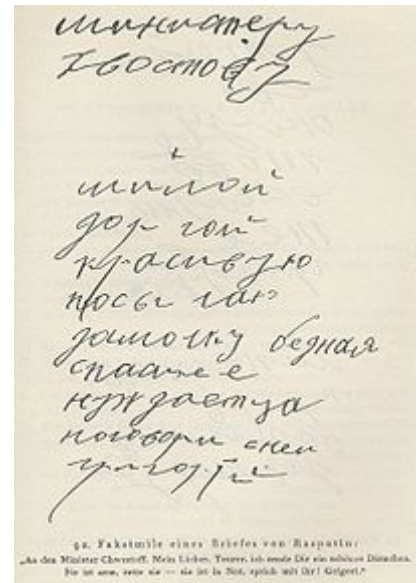 министеру
хвостову
+
милой
доргой
красивую
посылаю
дамочку бедная
спаание
нуждаетца
поговори с ней
григорий
92. Faksimile eines Briefes von Rasputin:
„An den Minister Chwostoff. Mein Lieber, Teurer, ich sende Dir ein schönes Dämchen.
Sie ist arm, rette sie — sie ist in Not, sprich mit ihr! Grigori.“